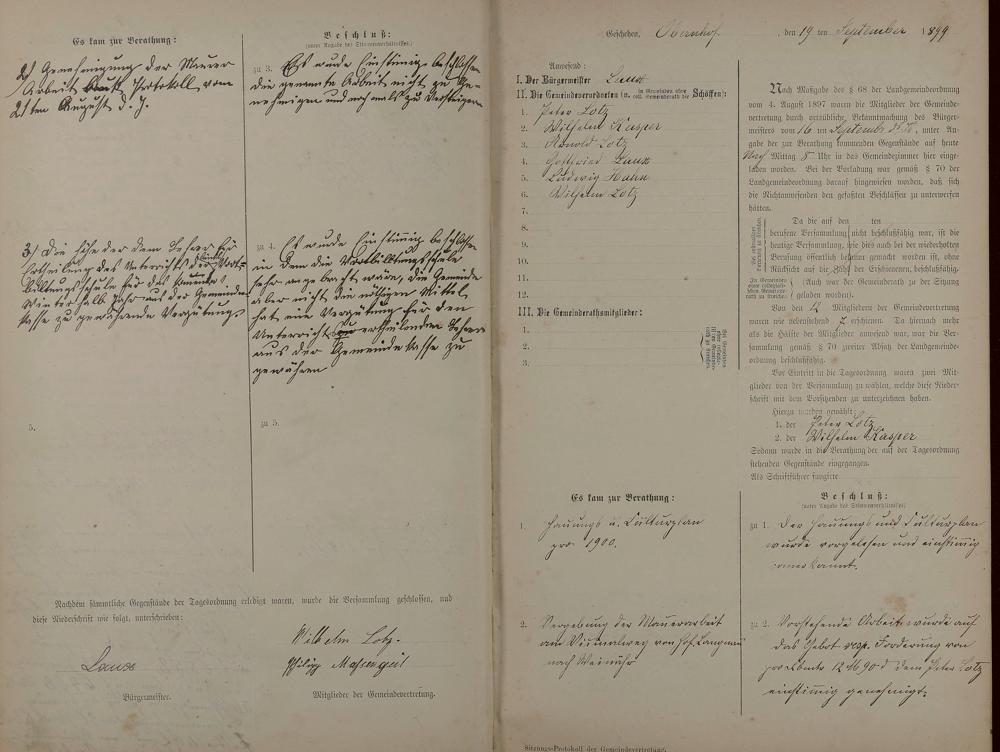 Es kam zur Berathung:
Beschluß:
(unter Angabe des Stimmenverhältnisses.)
2) Genehmigung der Maurer
Arbeit Protokoll vom
21ten August d. J.
zu 3. Es wurde Einstimmig beschlossen
die genannte Arbeit nicht zu Ge-
nehmigen und nochmals zu Versteigern
3.) Die Höhe der dem Lehrer für
Ertheilung des Unterrichts der Fort-
bildungsschule für das
Winter halb Jahr aus der Gemeinde
kasse zu gewährende Vergütung.
zu 4. Es wurde Einstimmig beschlossen
in dem die Fortbildungsschule
sehr angebracht wäre, die Gemeinde
aber nicht die nöthigen Mittel
hat eine Vergütung für den
Unterricht zu ertheilenden Lehrer
aus der Gemeindekasse zu
gewähren
5.
zu 5.
Nachdem sämmtliche Gegenstände der Tagesordnung erledigt waren, wurde die Versammlung geschlossen, und
diese Niederschrift wie folgt, unterschrieben:
Wilhelm Lotz.
Philipp
Laux
Bürgermeister.
Mitglieder der Gemeindevertretung.
Geschehen, Obernhof, den 19 ten September 1899
Anwesend:
I. Der Bürgermeister Laux
II. Die Gemeindeverordneten (u. in Gemeinden ohne coll. Gemeinderath die Schöffen):
1. Peter Lotz
2. Wilhelm Kasper
3. Arnold Lotz
4. Gottfried Laux
5. Ludwig Hahn
6. Wilhelm Lotz
7.
8.
9.
10.
11.
12.
III. Die Gemeinderathsmitglieder:
1.
2.
3.
Nach Maßgabe des § 68 der Landgemeindeordnung
vom 4. August 1897 waren die Mitglieder der Gemeinde-
vertretung durch ortsübliche Bekanntmachung des Bürger-
meisters vom 16 ten September d. Js., unter An-
gabe der zur Berathung kommenden Gegenstände auf heute
Nach Mittag 8 Uhr in das Gemeindezimmer hier einge-
laden worden. Bei der Vorladung war gemäß § 70 der
Landgemeindeordnung darauf hingewiesen worden, daß sich
die Nichtanwesenden den gefaßten Beschlüssen zu unterwerfen
hätten.
Da die auf den ten
berufene Versammlung nicht beschlußfähig war, ist die
heutige Versammlung, wie dies auch bei der wiederholten
Berufung öffentlich bekannt gemacht worden ist, ohne
Rücksicht auf die Zahl der Erschienenen, beschlußfähig.
(Auch war der Gemeinderath zu der Sitzung
geladen worden).
Von den 12 Mitgliedern der Gemeindevertretung
waren wie nebenstehend 7 erschienen. Da hiernach mehr
als die Hälfte der Mitglieder anwesend war, war die Ver-
sammlung gemäß § 70 zweiter Absatz der Landgemeinde-
ordnung beschlußfähig.
Vor Eintritt in die Tagesordnung waren zwei Mit-
glieder von der Versammlung zu wählen, welche diese Nieder-
schrift mit dem Vorsitzenden zu unterzeichnen haben.
Hierzu wurden gewählt:
1. der Peter Lotz
2. der Wilhelm Kasper
Sodann wurde in die Berathung der auf der Tagesordnung
stehenden Gegenstände eingegangen.
Als Schriftführer fungirte
Es kam zur Berathung:
Beschluß:
(unter Angabe des Stimmenverhältnisses)
1. Hauungs u. Culturplan
pro 1900.
zu 1. Der Hauungs und Culturplan
wurde vorgelesen und einstimmig
anerkannt.
2. Vergebung der Maurerarbeit
am Vicinalweg von Hof Langenau
nach Weinähr
zu 2. Vorstehende Arbeit wurde auf
das Gebot resp. Forderung von
dem Peter Lotz
einstimmig genehmigt.
Sitzungs-Protokoll der Gemeindevertretung.